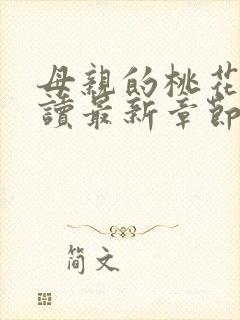 母親的桃花
讀最新章節
简文